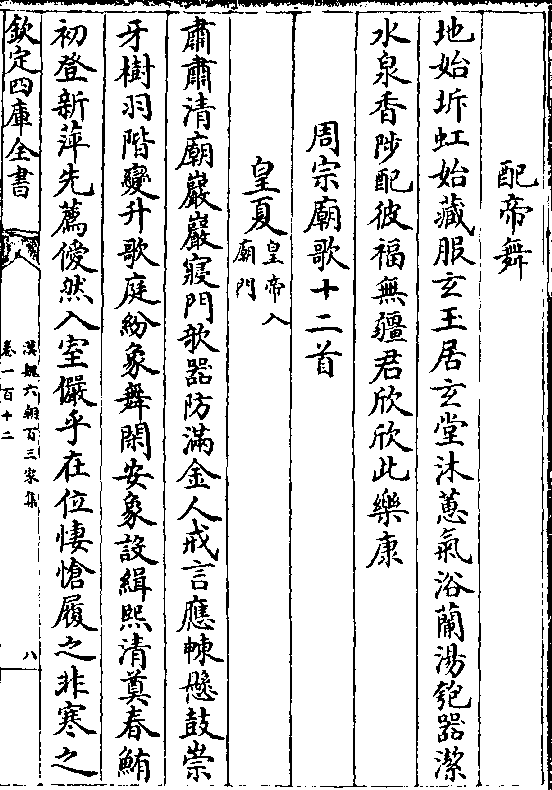 配帝舞
地始坼虹始藏服玄玉居玄堂沐蕙氣浴蘭湯匏器潔
水泉香陟配彼福無疆君欣欣此樂康
周宗廟歌十二首
皇夏皇帝入廟門
肅肅清廟巖巖寢門歌器防滿金人戒言應㯥懸鼓崇
牙樹羽階變升歌庭紛象舞閑安象設緝熙清奠春鮪
初登新萍先薦僾然入室儼乎在位悽愴履之非寒之
欽定四庫全書
漢魏六朝百三家集
卷一百十二
八